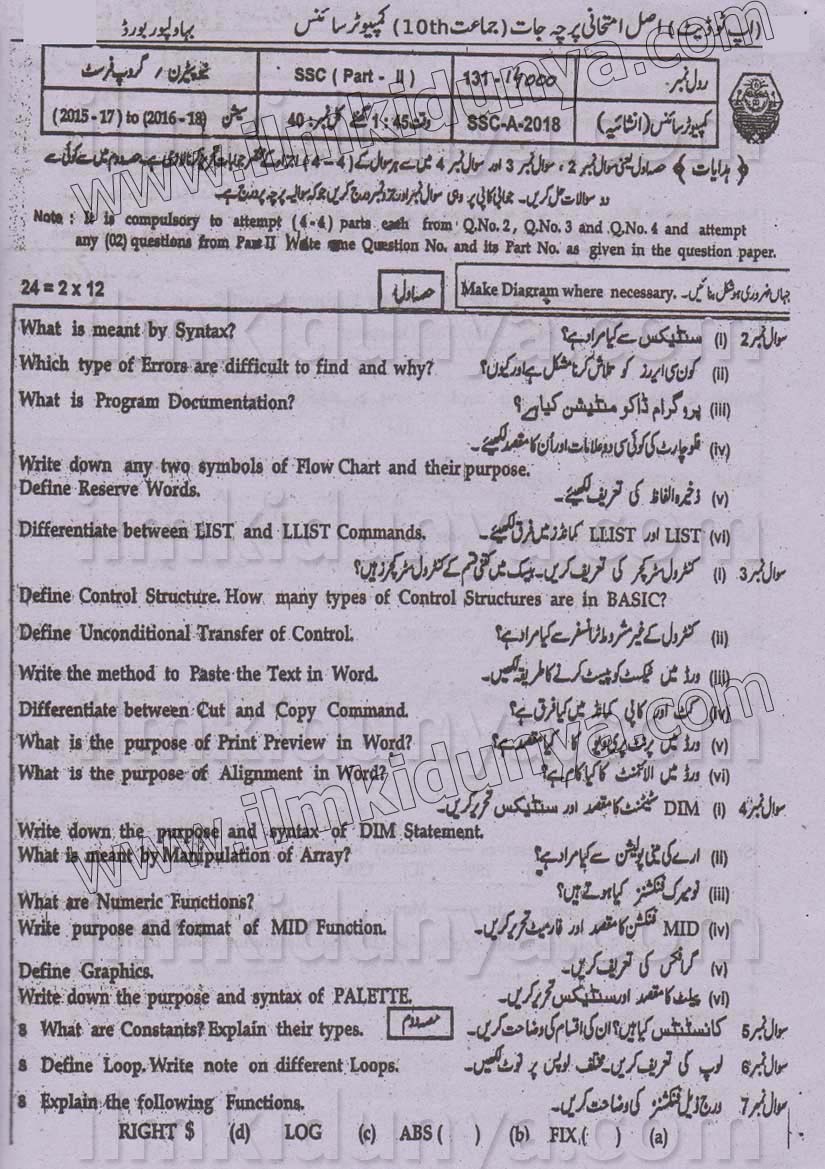 (اپ ٹو ڈیٹ) اصل امتحانی پرچہ جات (جماعت 10th) کمپیوٹر سائنس بہاولپور بورڈ
رول نمبر۔ 131-14000 SSC ( Part - II ) گروپ فرسٹ
کمپیوٹر سائنس (انشائیہ) SSC-A-2018 وقت 1:45 گھنٹے کل نمبر: 40 سیشن (2015 - 17) to (2016 - 18)
﴿ ہدایات ﴾ حصہ اول یعنی سوال نمبر 2، سوال نمبر 3 اور سوال نمبر 4 میں سے ہر سوال کے (4 - 4) حصہ دوم میں سے کوئی سے
دو سوالات حل کریں۔ جوابی کاپی پر وہی سوال نمبر اور جزو نمبر درج کریں جو کہ سوالیہ پرچہ پر درج ہے۔
Note : It is compulsory to attempt (4 - 4) parts each from Q.No. 2, Q.No. 3 and Q.No. 4 and attempt
any (02) questions from Part II Write Question No. and its Part No. as given in the question paper.
24 = 2 x 12 حصہ اول Make Diagram where necessary. جہاں ضروری ہو شکل بنائیں۔
What is meant by Syntax? سوال نمبر 2 (i) سنٹیکس سے کیا مراد ہے؟
Which type of Errors are difficult to find and why? (ii) کون سی ایررز کو تلاش کرنا مشکل ہے اور کیوں؟
What is Program Documentation? (iii) پروگرام ڈاکومنٹیشن کیا ہے؟
(iv) فلوچارٹ کی کوئی سی دو علامات اور اُن کا مقصد لکھیئے۔
Write down any two symbols of Flow Chart and their purpose.
Define Reserve Words. (v) ذخیرہ الفاظ کی تعریف لکھیئے۔
Differentiate between LIST and LLIST Commands. (vi) LIST اور LLIST کمانڈز میں فرق لکھیئے۔
سوال نمبر 3 (i) کنٹرول سٹرکچر کی تعریف کریں۔ بیسک میں کتنی قسم کے کنٹرول سٹرکچرز ہیں؟
Define Control Structure. How many types of Control Structures are in BASIC?
Define Unconditional Transfer of Control. (ii) کنٹرول کے غیر مشروط ٹرانسفر سے کیا مراد ہے؟
Write the method to Paste the Text in Word. (iii) ورڈ میں ٹیکسٹ کو پیسٹ کرنے کا طریقہ لکھیں۔
Differentiate between Cut and Copy Command. (iv) کٹ اور کاپی کمانڈ میں کیا فرق ہے؟
What is the purpose of Print Preview in Word? (v) ورڈ میں پرنٹ پری ویو کا کیا مقصد ہے؟
What is the purpose of Alignment in Word? (vi) ورڈ میں الائنمنٹ کا کیا کام ہے؟
سوال نمبر 4 (i) DIM سٹیٹمنٹ کا مقصد اور سنٹیکس تحریر کریں۔
Write down the purpose and syntax of DIM Statement.
What is meant by Manipulation of Array? (ii) ارے کی مینی پولیشن سے کیا مراد ہے؟
(iii) نیومیرک فنکشنز کیا ہوتے ہیں؟
What are Numeric Functions?
Write purpose and format of MID Function. (iv) MID فنکشن کا مقصد اور فارمیٹ تحریر کریں۔
(v) گرافکس کی تعریف کریں۔
Define Graphics.
Write down the purpose and syntax of PALETTE. (vi) پیلٹ کا مقصد اور سنٹیکس تحریر کریں۔
8 What are Constants? Explain their types. حصہ دوم سوال نمبر 5 کانسٹنٹس کیا ہیں؟ ان کی اقسام کی وضاحت کریں۔
8 Define Loop. Write note on different Loops. سوال نمبر 6 لوپ کی تعریف کریں۔ مختلف لوپس پر نوٹ لکھیں۔
8 Explain the following Functions. سوال نمبر 7 درج ذیل فنکشنز کی وضاحت کریں۔
RIGHT $ (d) LOG (c) ABS ( ) (b) FIX ( ) (a)
www.ilmkidunya.com